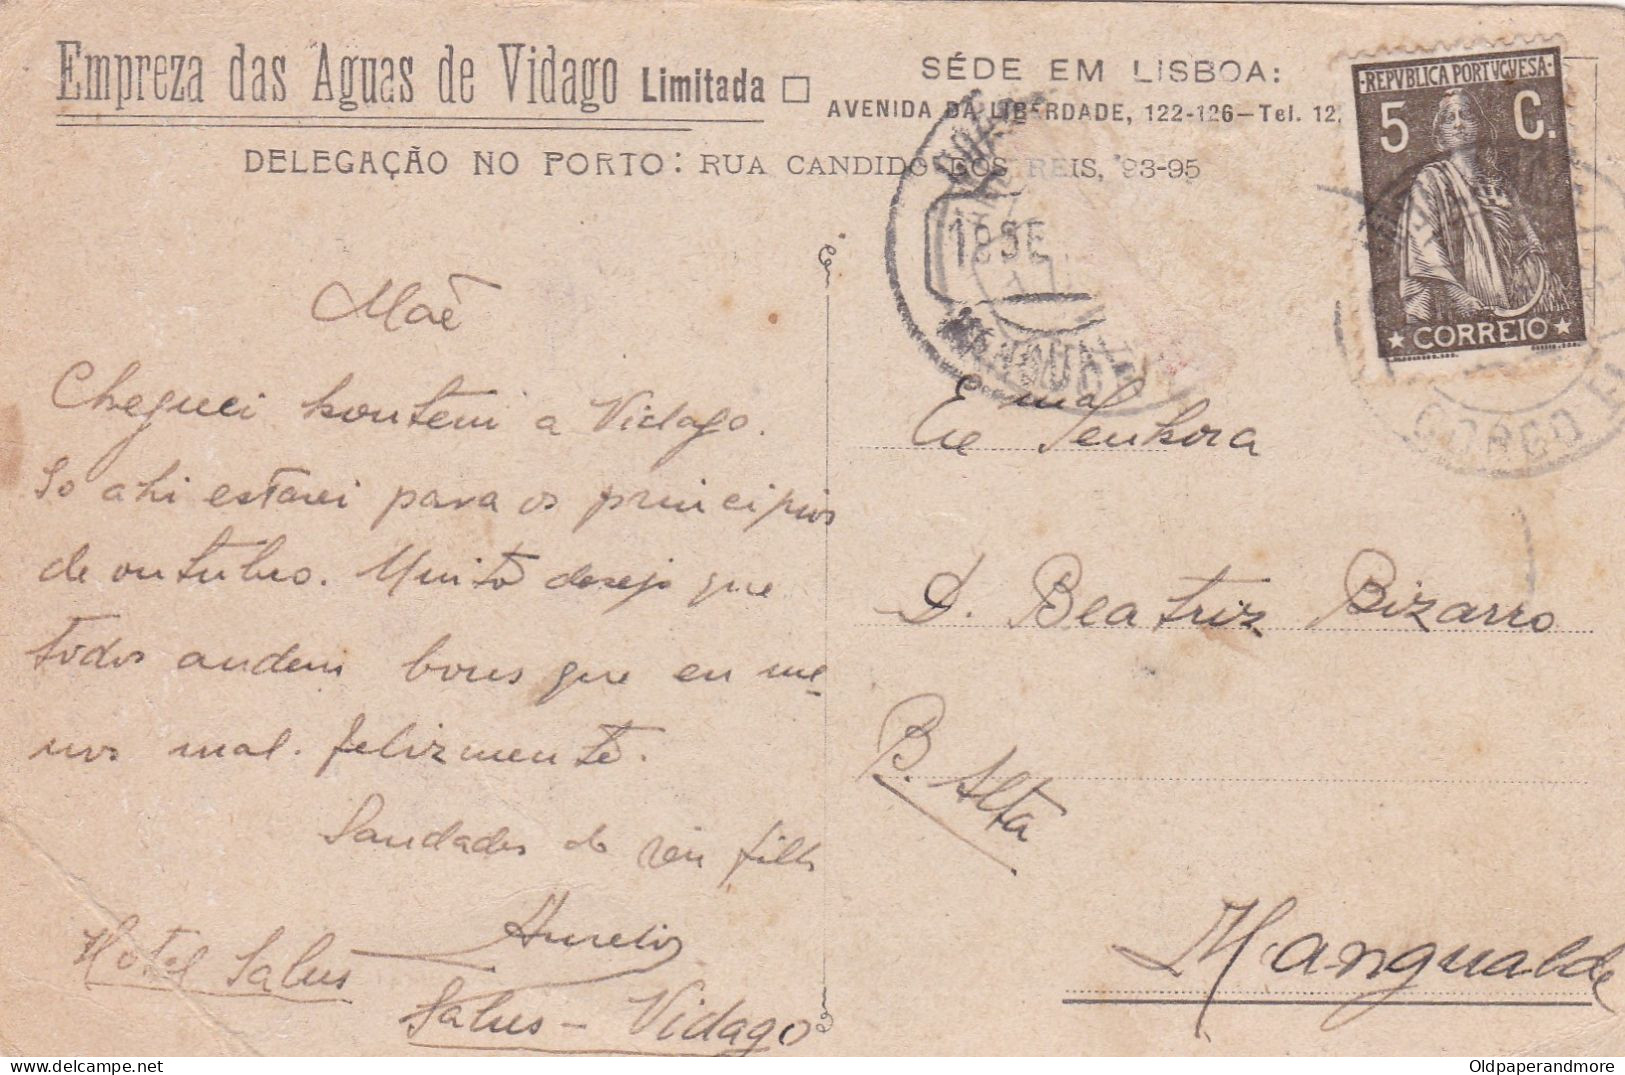 Empreza das Aguas de Vidago Limitada
SÉDE EM LISBOA:
AVENIDA DA LIBERDADE, 122-126—Tel. 12,
DELEGAÇÃO NO PORTO: RUA CANDIDO DOS REIS, 93-95
REPVBLICA PORTVGVESA
5 C.
CORREIO
18 SE
CORGO
Maê
Cheguei hontem a Vidago.
So ahi estarei para os principios
de outubro. Muito desejo que
todos andem bons que eu me-
nos mal. felizmente.
Saudades do seu filho
Aurelio
Hotel Salus
Salus - Vidago
Exma Senhora
D. Beatriz Bizarro
B. Alta
Mangualde
Oldpaperandmore